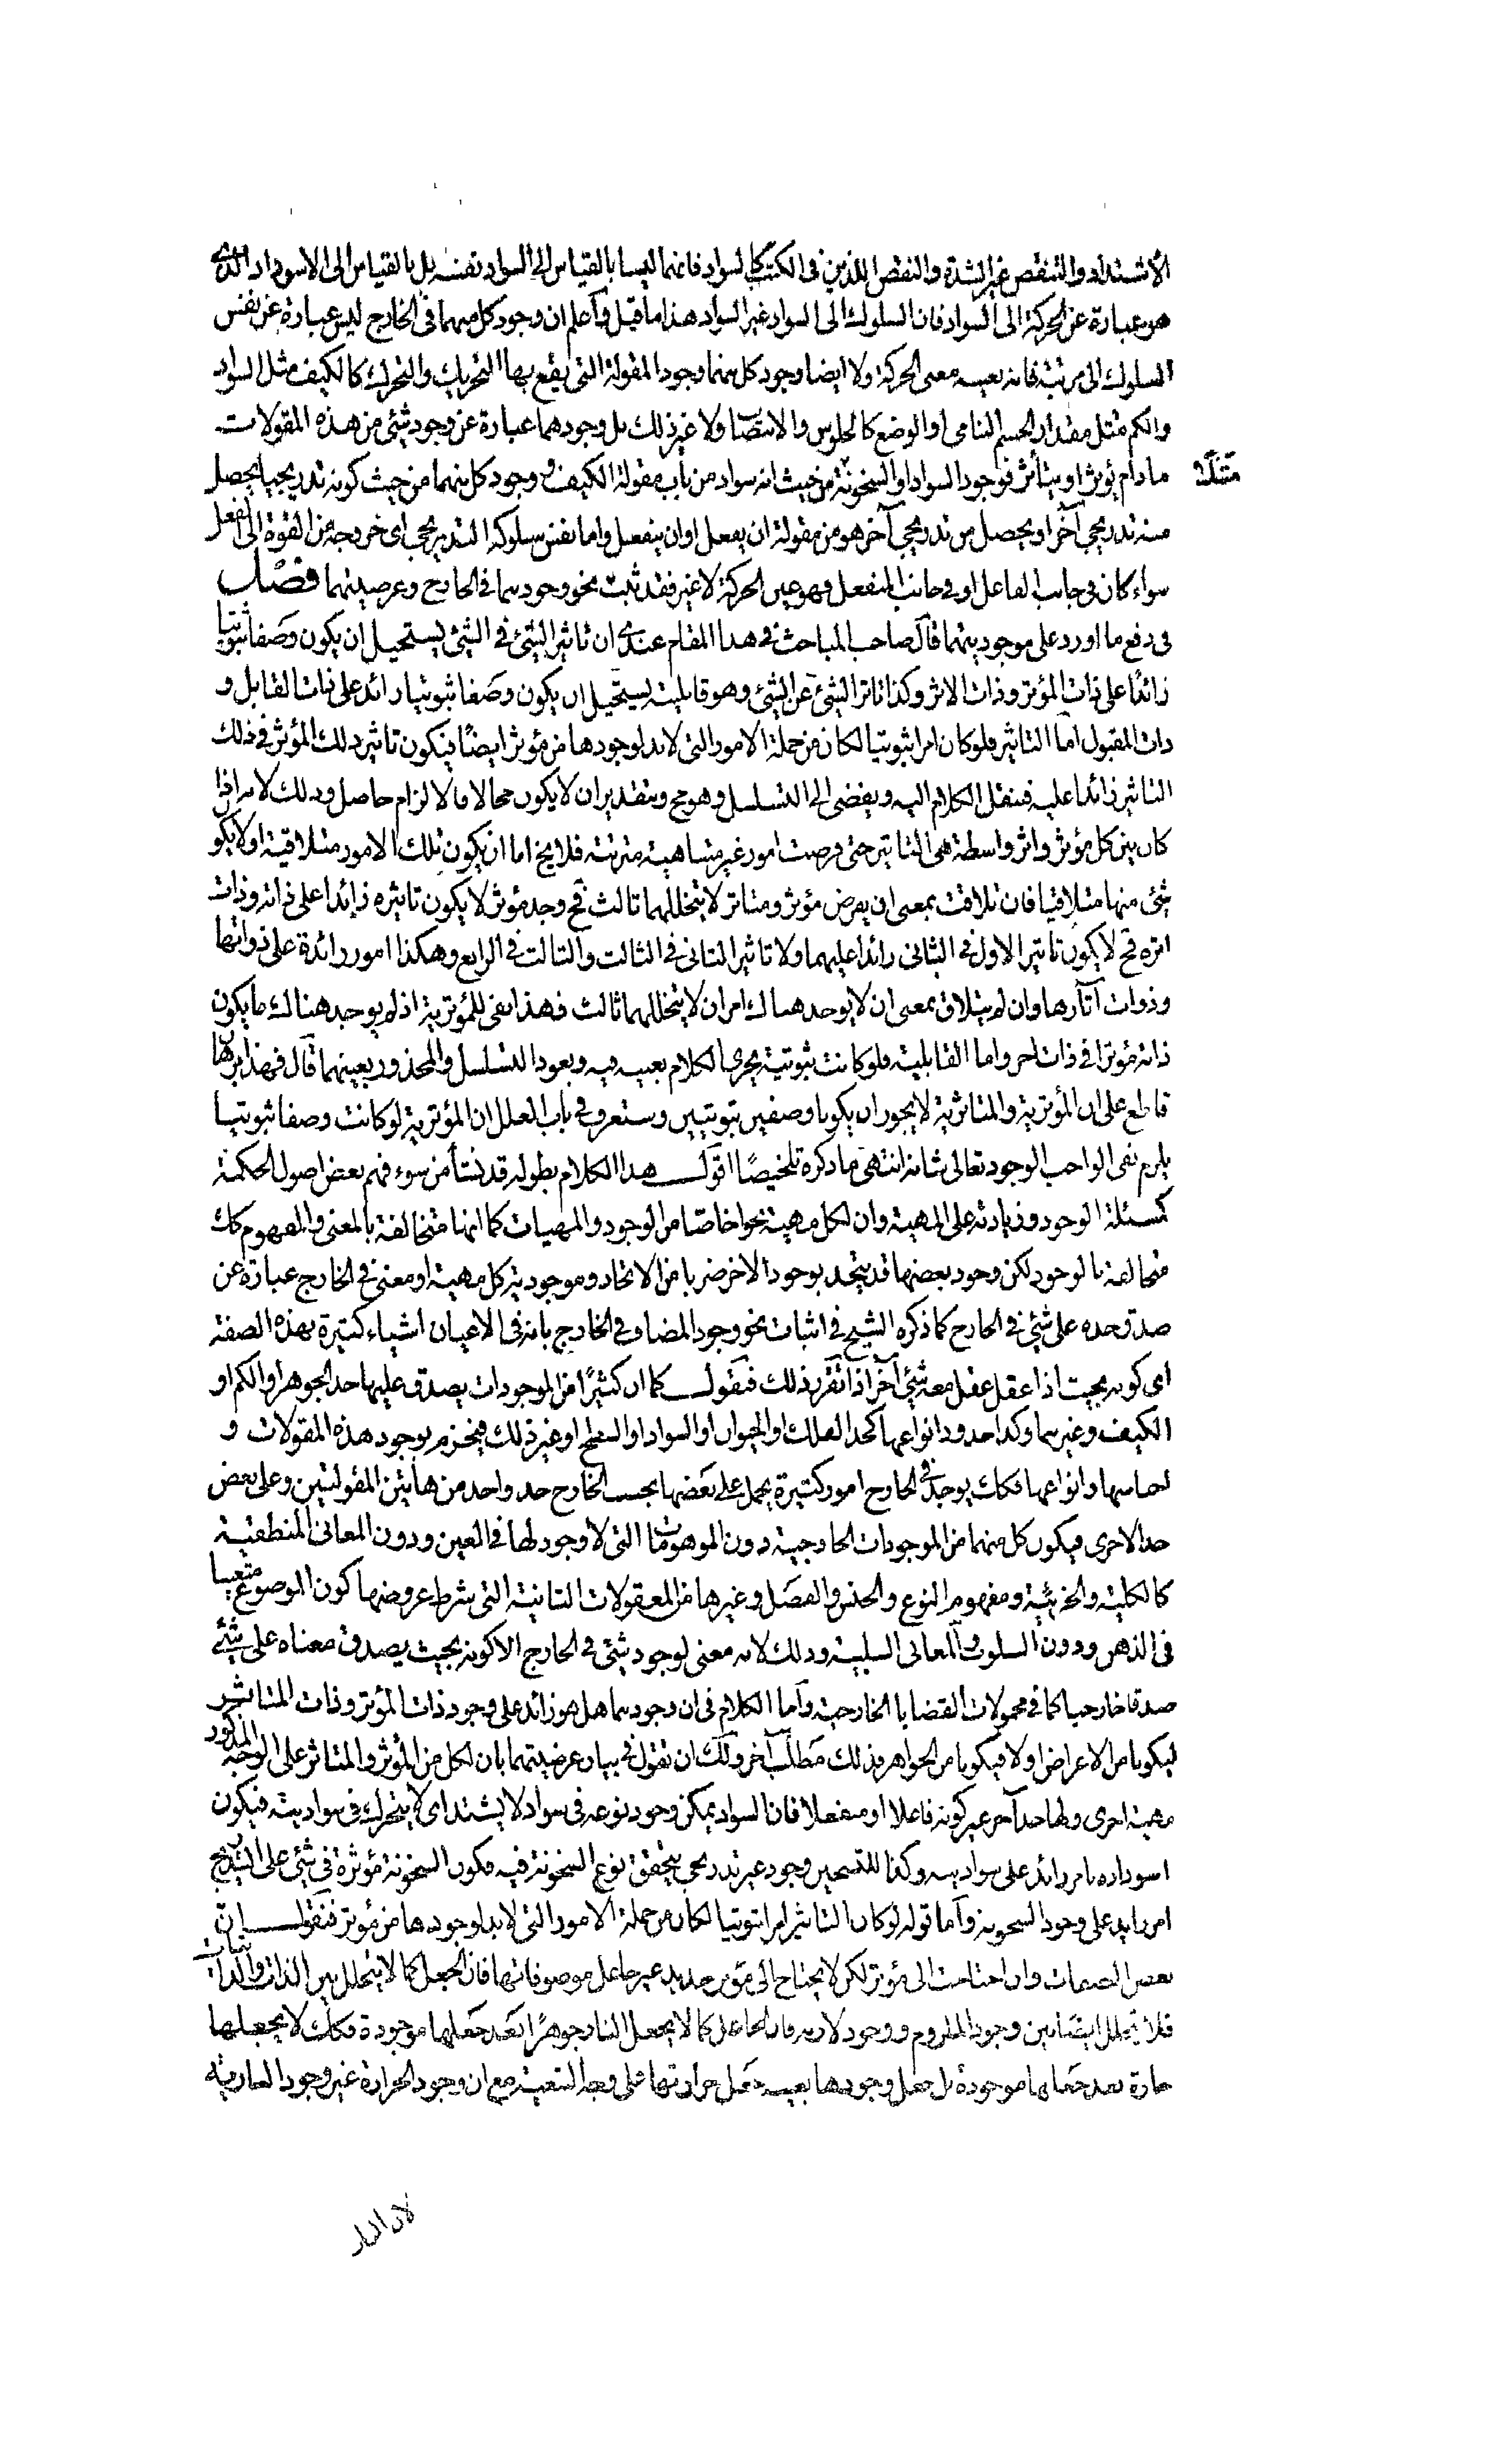 الاشتداد والتنقص غير الشدة والنقص اللذين فى الكتب كالسواد فانهما ليسا بالقياس الى السواد نفسه بل بالقياس الى الاسوداد الذى
هو عبارة عن الحركة الى السواد فان السلوك الى السواد غير السواد هذا ما قيل واعلم ان وجود كل منهما فى الخارج ليس عبارة عن نفس
السلوك الى مرتبة فانه بعينه معنى الحركة ولا ايضا وجود كل منهما وجود المقولة التى يقع بها التحريك والتحرك كالكيف مثل السواد
والكم مثل مقدار الجسم النامى او الوضع كالجلوس والانتصاب ولا غير ذلك بل وجودهما عبارة عن وجود شئى من هذه المقولات
ما دام يؤثر او يتأثر فوجود السواد او السخونة من حيث انه سواد من باب مقولة الكيف و وجود كل منهما من حيث كونه تدريجيا يحصل
منه تدريجى آخر او يحصل من تدريجى آخر هو من مقولة ان يفعل او ان ينفعل واما نفس سلوكه التدريجى اى خروجه من القوة الى الفعل
سواء كان فى جانب الفاعل او فى جانب المنفعل فهو عين الحركة لا غير فقد ثبت نحو وجودهما فى الخارج وعرضيتهما فصل
فى دفع ما اورد على موجوديتهما قال صاحب المباحث فى هذا المقام عندى ان تاثير الشئ فى الشئ يستحيل ان يكون وصفا ثبوتيا
زائدًا على ذات المؤثر وذات الاثر وكذا تاثر الشئ عن الشئ وهو قابليته يستحيل ان يكون وصفا ثبوتيا زائدا على ذات القابل و
ذات المقبول اما التاثير فلو كان امرا ثبوتيا لكان من جملة الامور التى لا بد لوجودها من مؤثر ايضًا فيكون تاثير ذلك المؤثر فى ذلك
التاثير زائدا عليه فننقل الكلام اليه ويفضى الى التسلسل وهو مح وبتقدير ان لا يكون محالا فالالزام حاصل وذلك لانه اذا
كان بين كل مؤثر واثر واسطة هى التاثير حتى فرضت امور غير متناهية مترتبة فلا يخ اما ان يكون تلك الامور متلاقية او لا يكون
شئى منها متلاقيا فان تلاقت بمعنى ان يفرض مؤثر ومتاثر لا يتخللهما ثالث فح وجد مؤثر لا يكون تاثيره زائدا على ذاته وذات
اثره فح لا يكون تاثير الاول فى الثانى زائدا عليهما ولا تاثير الثانى فى الثالث والثالث فى الرابع وهكذا امور زائدة على ذواتها
وذوات آثارها وان لم يتلاق بمعنى ان لا يوجد هناك امران لا يتخللهما ثالث فهذا نفى للمؤثرية اذ لم يوجد هناك ما يكون
ذاته مؤثرا فى ذات اخر واما القابلية فلو كانت ثبوتية يجرى الكلام بعينه فيه ويعود التسلسل والمحذور بعينهما قال فهذا برهان
قاطع على ان المؤثرية والمتاثرية لا يجوز ان يكونا وصفين ثبوتيين وستعرف فى باب العلل ان المؤثرية لو كانت وصفا ثبوتيا
يلزم نفى الواجب الوجود تعالى شانه انتهى ما ذكره تلخيصًا اقول هذا الكلام بطوله قد نشأ من سوء فهم بعض اصول الحكمة
كمسئلة الوجود وزيادته على المهية وان لكل مهية نحوا خاصّا من الوجود والمهيات كما انها متخالفة بالمعنى والمفهوم كك
متخالفة بالوجود لكن وجود بعضها قد يتحد بوجود الاخر ضربا من الاتحاد وموجودية كل مهية او معنى فى الخارج عبارة عن
صدق حده على شئى فى الخارج كما ذكره الشيخ فى اثبات نحو وجود المضاف فى الخارج بانه فى الاعيان اشياء كثيرة بهذه الصفة
اى كونه بحيث اذا عقل عقل معه شئى آخر اذا تقرر ذلك فنقول كما ان كثيرًا من الموجودات يصدق عليها حد الجوهر او الكم او
الكيف وغيرهما وكذا حدود انواعها كحد الفلك او الحيوان او السواد او السطح او غير ذلك فيجزم بوجود هذه المقولات و
اجناسها وانواعها فكك يوجد فى الخارج امور كثيرة يحمل على بعضها بحسب الخارج حد واحد من هاتين المقولتين وعلى بعض
حد الاخرى فيكون كل منهما من الموجودات الخارجية دون الموهومات التى لا وجود لها فى العين ودون المعانى المنطقية
كالكلية والجزئية ومفهوم النوع والجنس والفصل وغيرها من المعقولات الثانية التى شرط عروضها كون الموضوع متعينا
فى الذهن ودون السلوب والمعانى السلبية وذلك لانه لا معنى لوجود شئى فى الخارج الا كونه بحيث يصدق معناه على شئى
صدقا خارجيا كما فى محمولات القضايا الخارجية واما الكلام فى ان وجودهما هل هو زائد على وجود ذات المؤثر وذات المتاثر
ليكونا من الاعراض او لا فيكونا من الجواهر فذلك مطلب آخر ولك ان تقول فى بيان عرضيتهما بان لكل من المؤثر والمتاثر على الوجه المذكور
مهية اخرى ولها حدا آخر غير كونه فاعلا او منفعلا فان السواد يمكن وجود نوعه فى سواد لا يشتد اى لا يتحرك فى سواديته فيكون
اسوداده امر زائد على سواديته وكذا للتسخين وجود غير تدريجى يتحقق نوع السخونة فيه فكون السخونة مؤثرة فى شئى على التدريج
امر زايد على وجود السخونة واما قوله لو كان التاثير امرا ثبوتيا لكان من جملة الامور التى لا بد لوجودها من مؤثر فنقول ان
بعض الصفات وان احتاجت الى مؤثر لكن لا يحتاج الى مؤثر جديد غير جاعل موصوفاتها فان الجعل كما لا يتخلل بين الذات والذاتيات
فلا يتخلل ايضًا بين وجود الملزوم ووجود لازمه فان الجاعل كما لا يجعل النار جوهرًا بعد جعلها موجودة فكك لا يجعلها
حارة بعد جعلها موجودة بل جعل وجودها بعينه جعل حرارتها على وجه التبعية مع ان وجود الحرارة غير وجود النارية